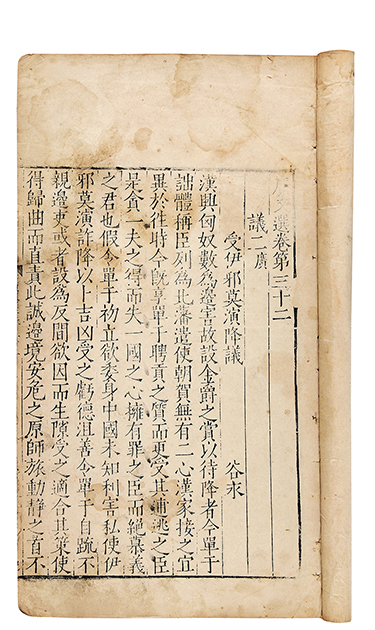 文選卷第三十二
議二廣
受伊邪莫演降議 谷永
漢興匈奴數為邊害故設金爵之賞以待降者今單于
詘體稱臣列為北藩遣使朝賀無有二心漢家接之宜
異於徃時今旣享單于聘貢之質而更受其逋逃之臣
是貪一夫之得而失一國之心擁有罪之臣而絕慕義
之君也假令單于初立欲委身中國未知利害私使伊
邪莫演詐降以卜吉凶受之虧德沮善令單于自疏不
親邊吏或者設為反間欲因而生隙受之適合其策使
得歸曲而直責此誠邊境安危之原師旅動靜之首不